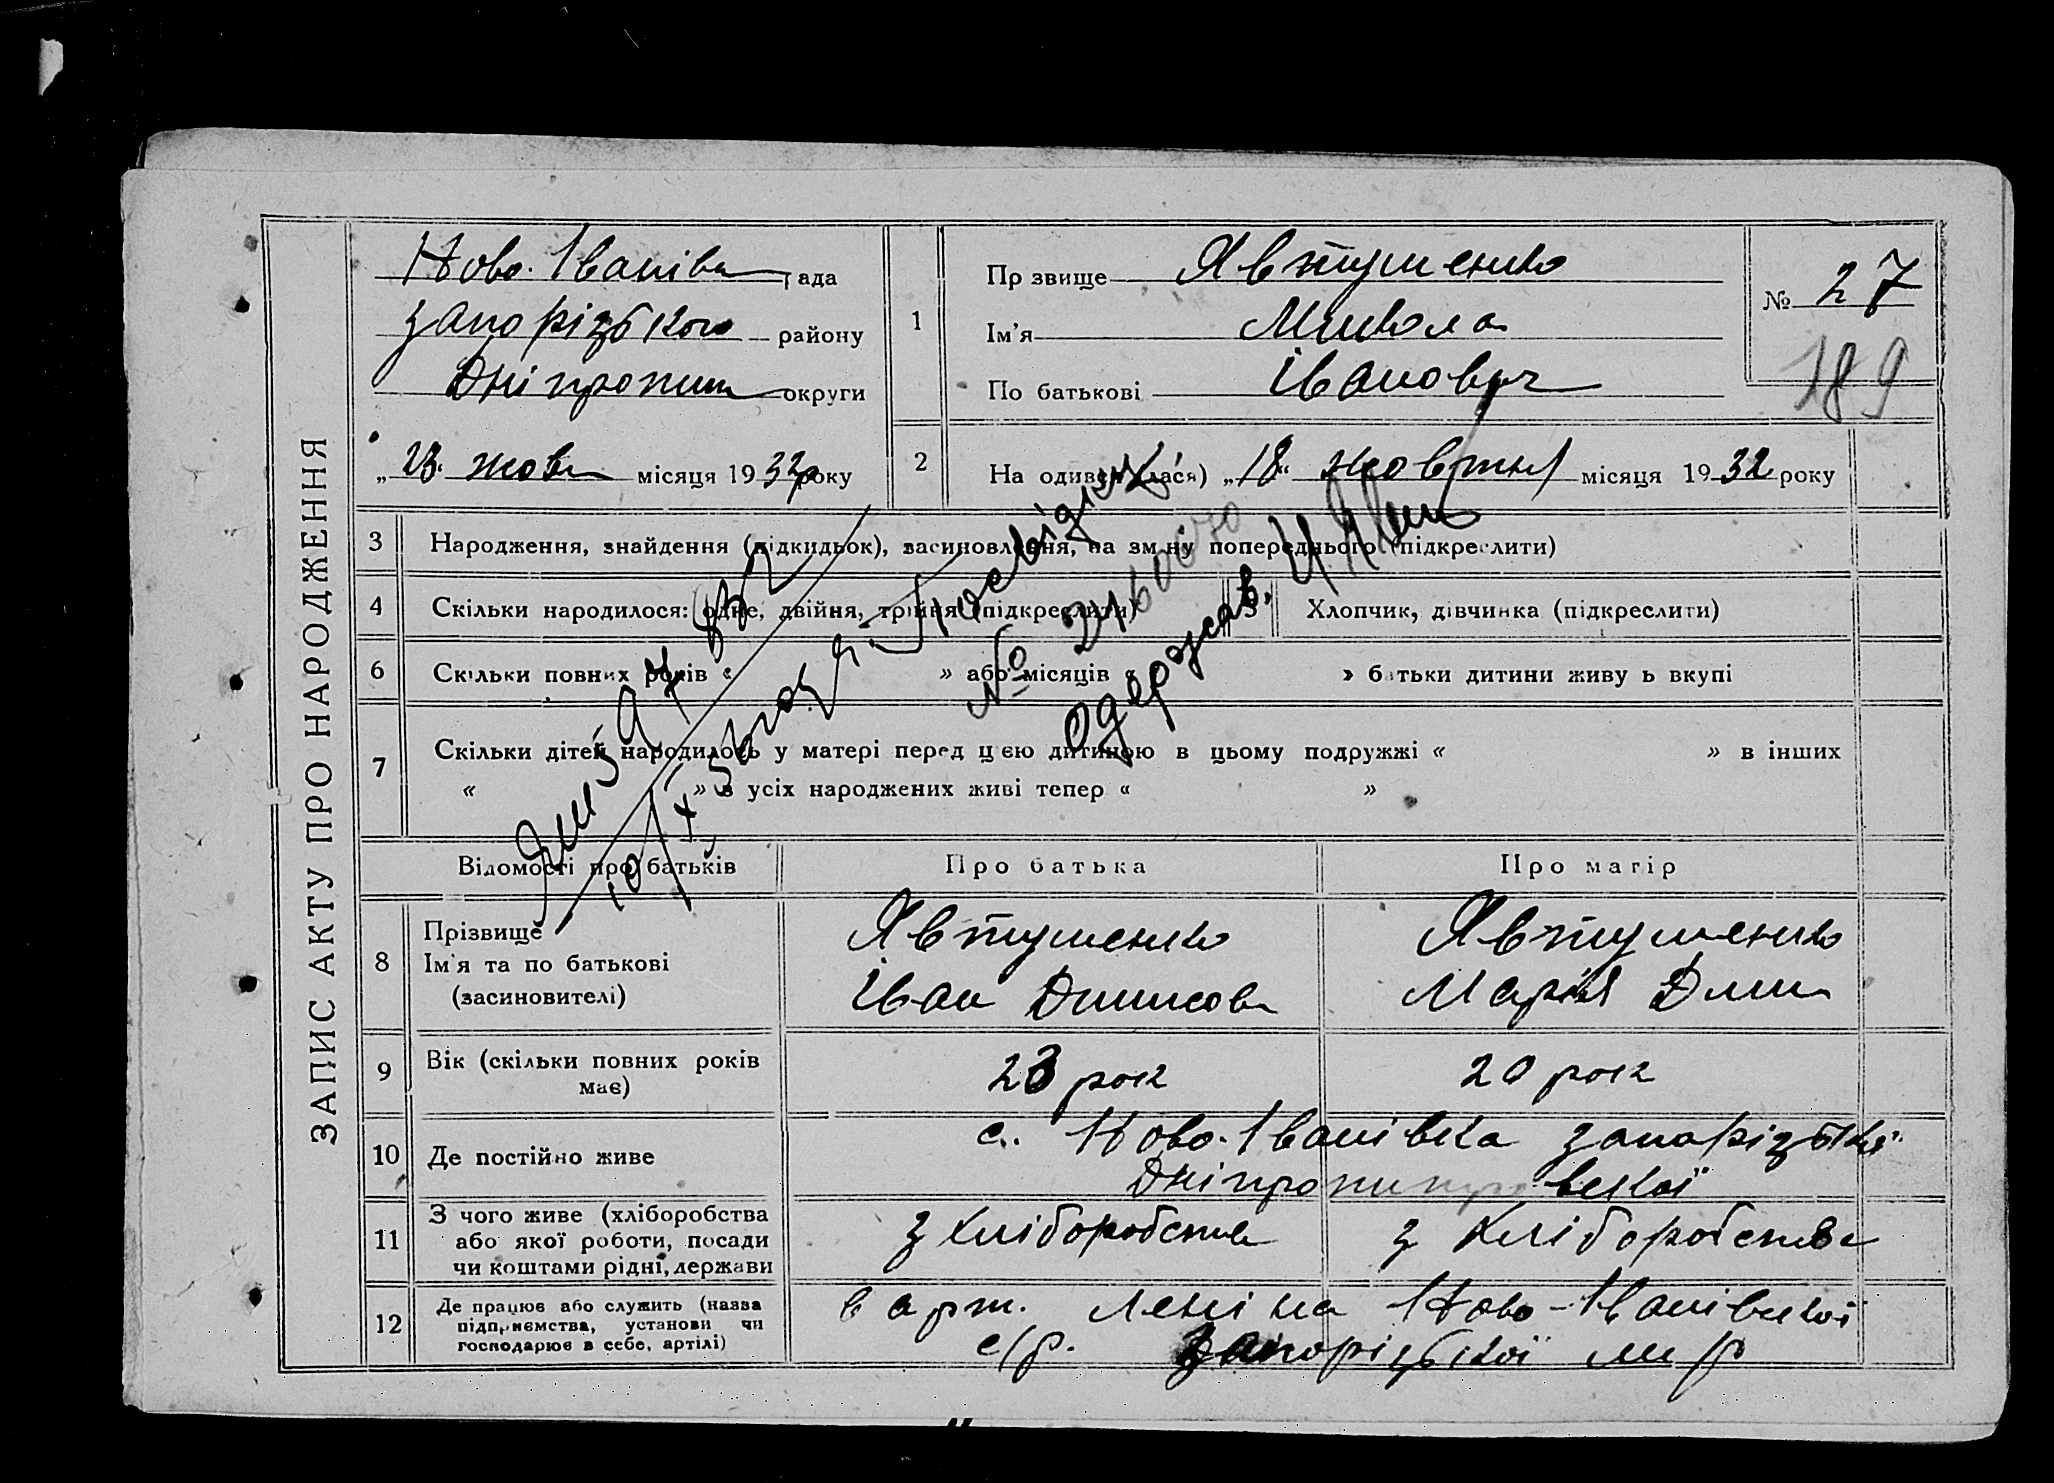 ЗАПИС АКТУ ПРО НАРОДЖЕННЯ
Ново-Іванівка рада
Запорізького району
Дніпропит округи
„23" жовт місяця 1932 року
1
Прізвище Явтушенко
Ім'я Микола
По батькові Іванович
№ 27
189
2
На одивсь (лася) „18" жовтня місяця 1932 року
3 Народження, знайдення (підкидьок), засиновлення, на зміну попереднього (підкреслити)
4 Скільки народилося: одне, двійня, трійня (підкреслити) 5 Хлопчик, дівчинка (підкреслити)
6 Скільки повних років « » або місяців « » батьки дитини живуть вкупі
7 Скільки дітей народилось у матері перед цією дитиною в цьому подружжі « » в інших
« » з усіх народжених живі тепер « »
Посвідку
№
одержав.
Відомості про батьків Про батька Про матір
8 Прізвище
Ім'я та по батькові
(засиновителі)
Явтушенко
Іван
Явтушенко
Марія
9 Вік (скільки повних років має)
23 рок 20 рок
10 Де постійно живе
с. Ново-Іванівка Запорізької
Дніпропитровської
11 З чого живе (хліборобства
або якої роботи, посади
чи коштами рідні, держави
з хліборобства з хліборобства
12 Де працює або служить (назва
підприємства, установи чи
господарює в себе, артілі)
в арт. Леніна Ново-Іванівської
с/р. Запорізької м р